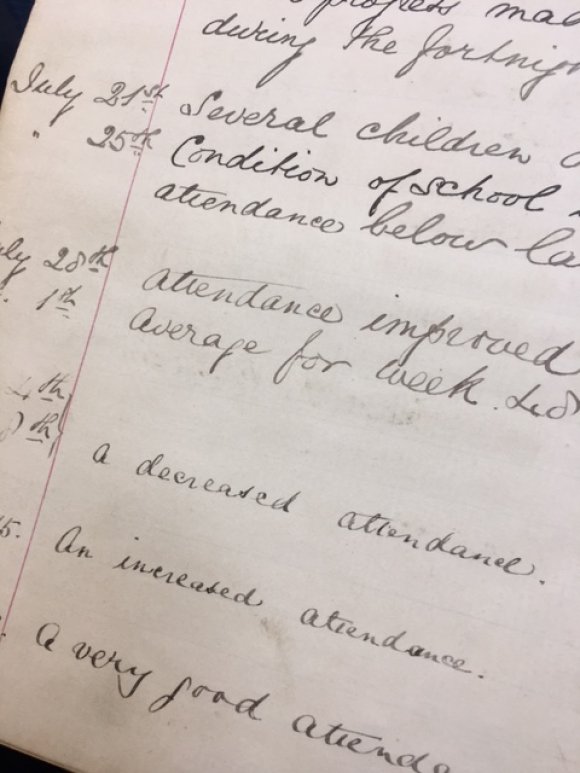 progress mad
during the fortnigh
July 21st Several children
" 25th Condition of school
attendance below la
ly 28th attendance improved
1th Average for week
4th
8th
A decreased attendance.
5. An increased attendance.
A very good attenda